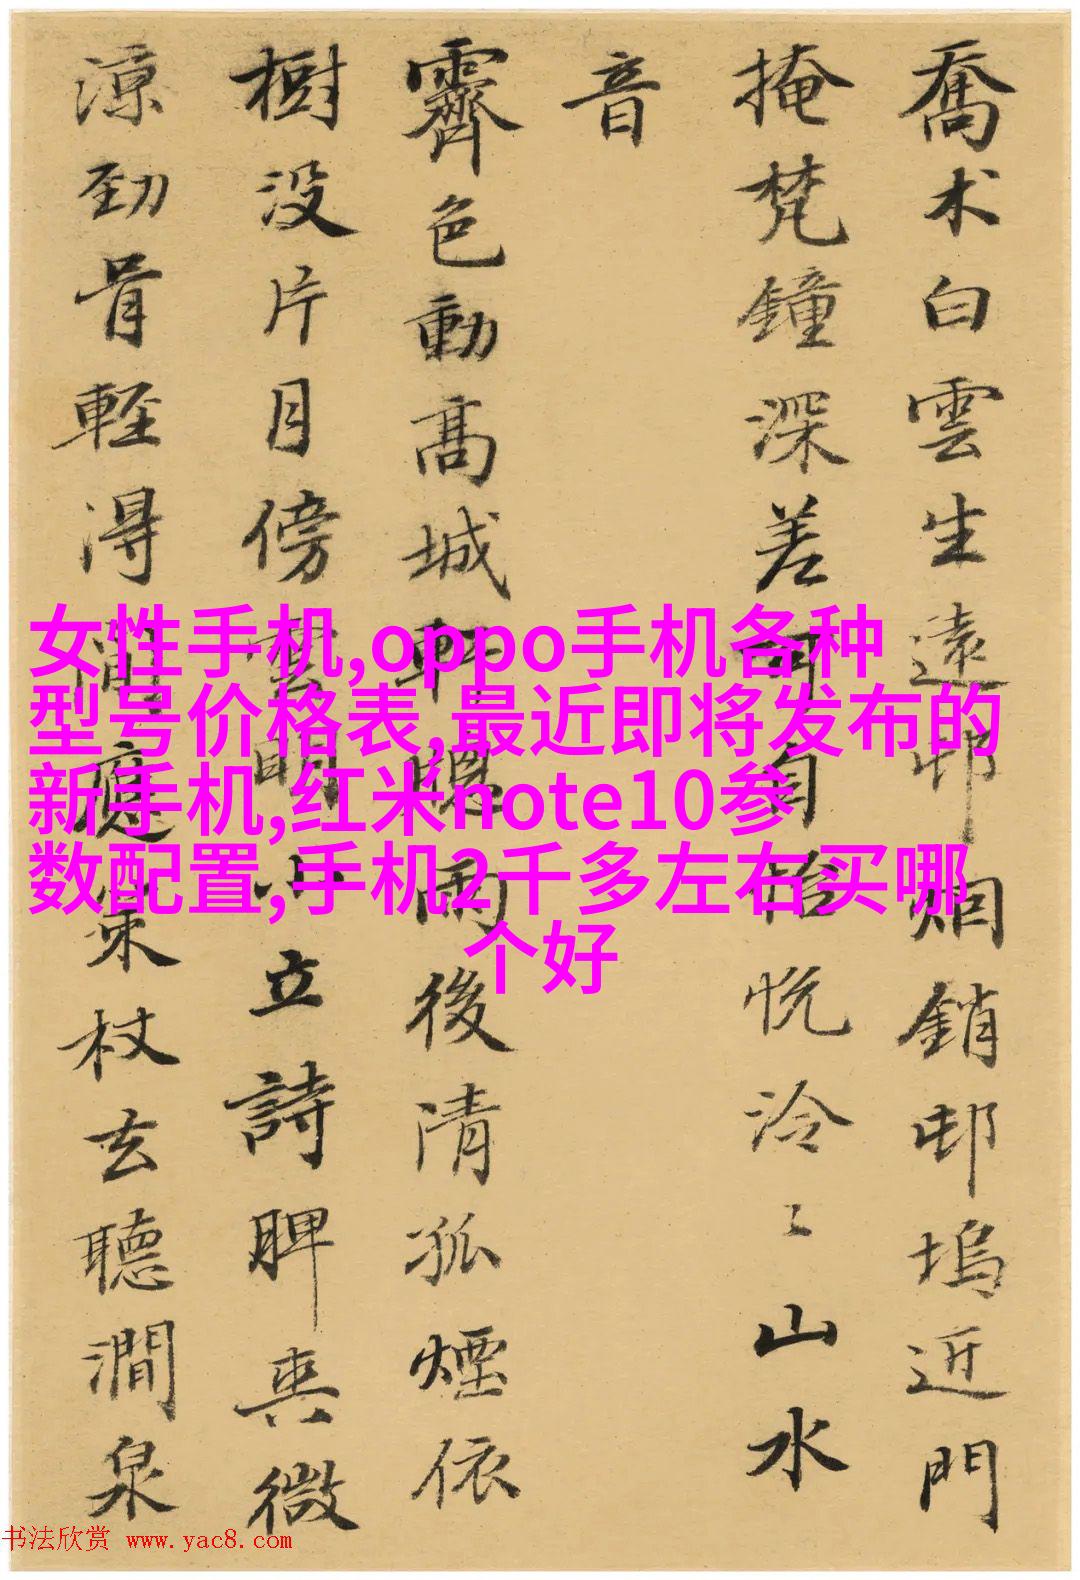 喬木白雲生遠邨烟銷邨塢近門
掩梵鐘深差可自怡悦泠〻山水
音
霽色動高城軒牕雨後清孤煙依
樹没片月傍雲明小立詩脾爽微
涼勁骨輕得閒應策杖去聽澗泉
女性手机,oppo手机各种
型号价格表,最近即将发布的
新手机,红米note10参
数配置,手机2千多左右买哪
个好
书法欣赏 www.yac8.com